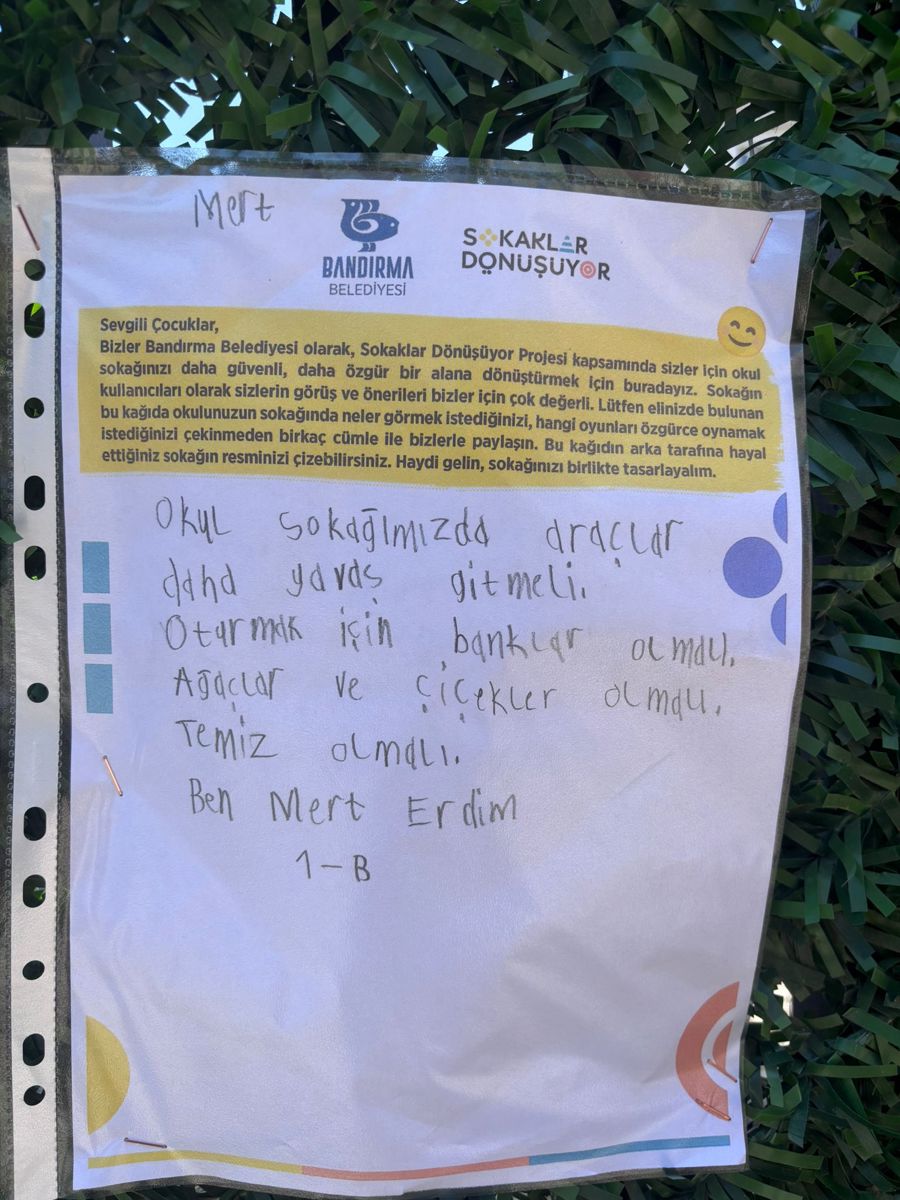 Mert
BANDIRMA
BELEDİYESİ
SOKAKLAR
DÖNÜŞÜYOR
Sevgili Çocuklar,
Bizler Bandırma Belediyesi olarak, Sokaklar Dönüşüyor Projesi kapsamında sizler için okul
sokağınızı daha güvenli, daha özgür bir alana dönüştürmek için buradayız. Sokağın
kullanıcıları olarak sizlerin görüş ve önerileri bizler için çok değerli. Lütfen elinizde bulunan
bu kağıda okulunuzun sokağında neler görmek istediğinizi, hangi oyunları özgürce oynamak
istediğinizi çekinmeden birkaç cümle ile bizlerle paylaşın. Bu kağıdın arka tarafına hayal
ettiğiniz sokağın resminizi çizebilirsiniz. Haydi gelin, sokağınızı birlikte tasarlayalım.
Okul sokağımızda araçlar
daha yavaş gitmeli.
Oturmak için banklar olmalı.
Ağaçlar ve çiçekler olmalı.
Temiz olmalı.
Ben Mert Erdim
1-B